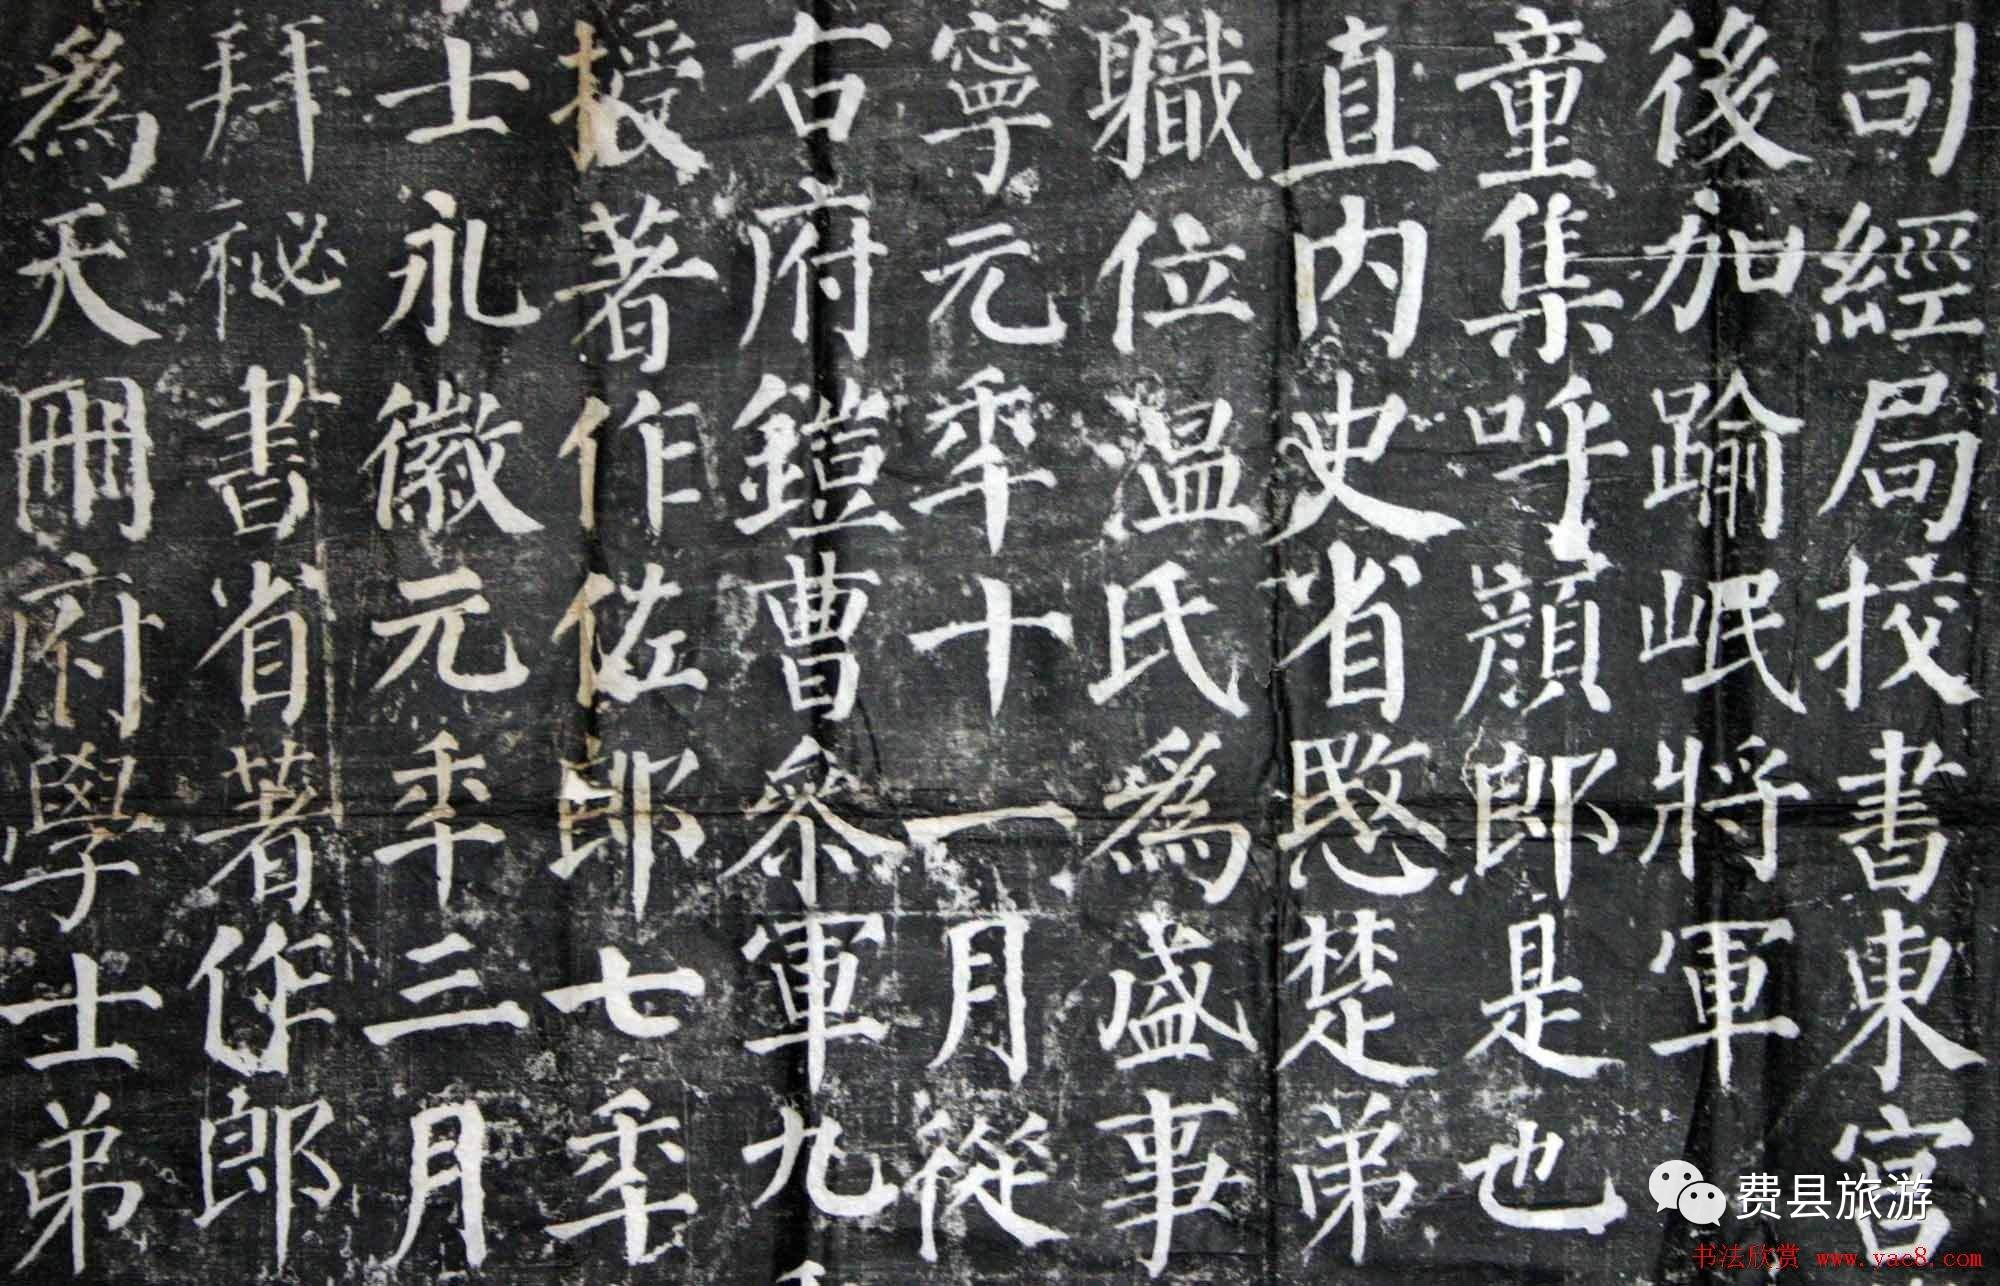 司經局挍書東宮
後加踰岷將軍
童集呼顔郎是也
直內史省愍楚弟
職位温氏爲盛事
寧元年十一月從
右府鎧曹參軍九
授著作佐郎七年
士永徽元年三月
拜祕書省著作郎
爲天冊府學士弟
费县旅游
书法欣赏 www.yac8.com